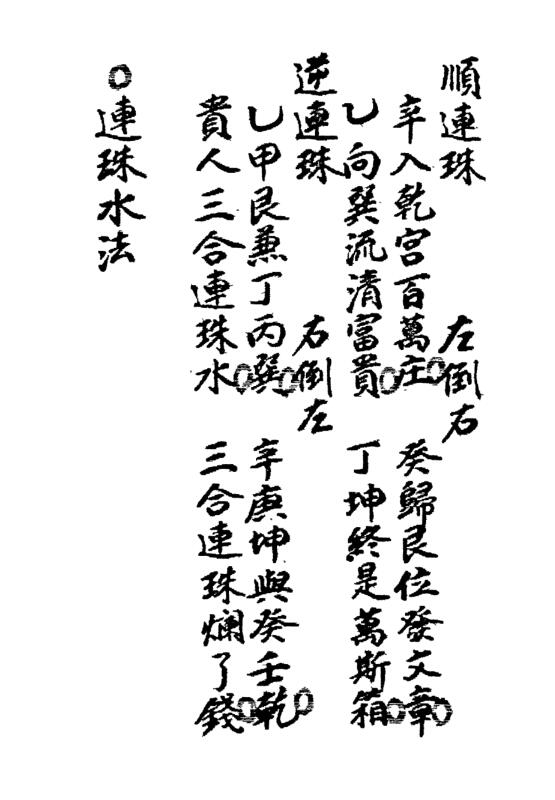 順連珠　左倒右
辛入乾宮百萬庄○　癸歸艮位發文章○
乙向巽流清富貴○　丁坤終是萬斯箱○
逆連珠　右倒左
乙甲艮兼丁丙巽○　辛庚坤與癸壬乾○
貴人三合連珠水○　三合連珠爛了錢○
○連珠水法